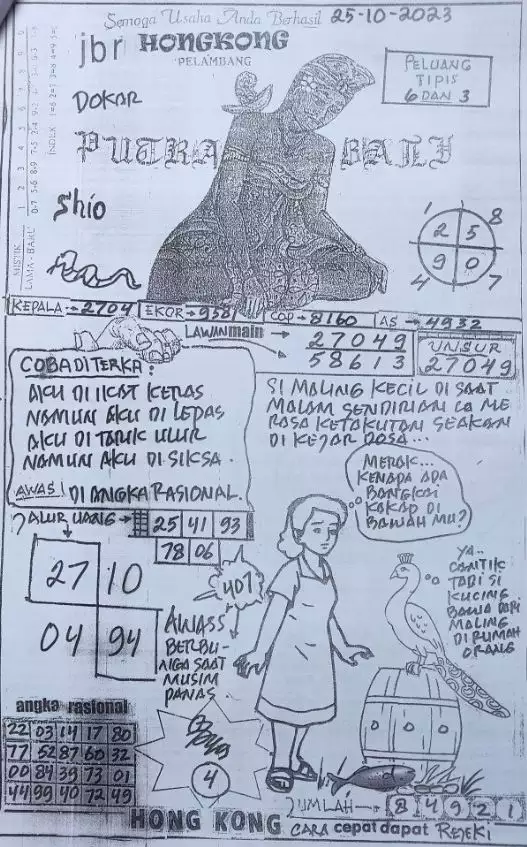 Semoga Usaha Anda Berhasil 25-10-2023
jbr HONGKONG
PELAMBANG
PELUANG
TIPIS
6 DAN 3
DOKAR
PUTRA BALI
Shio
MISTIK
LAMA - BARU
INDEX
1 8
2 5
9 0
4 7
KEPALA → 2704 EKOR → 9581 COP → 8160 AS → 4932
LAWAN main → 27049
58613
UNSUR
27049
COBA DI TERKA:
AKU DI IKAT KERAS
NAMUN AKU DI LEPAS
AKU DI TARIK ULUR
NAMUN AKU DI SIKSA.
AWAS! DI ANGKA RASIONAL.
SI MALING KECIL DI SAAT
MALAM SENDIRIAN ME
RASA KETAKUTAN SEAKAN
DI KEJAR DOSA...
JALUR UANG → 25 41 93
78 06
MERAK...
KENAPA ADA
BANGKAI
KAKAP DI
BAWAH MU?
27 10
04 94
407
AWASS
BERBU-
NGA SAAT
MUSIM
PANAS
YA..
CANTIK
TADI SI
KUCING
BAWA DARI
MALING
DI RUMAH
ORANG
angka rasional
22 03 14 17 80
77 52 87 60 32
00 84 39 73 01
44 99 40 72 49
4
JUMLAH → 8 4 9 2 1
HONG KONG CARA cepat dapat REJEKI